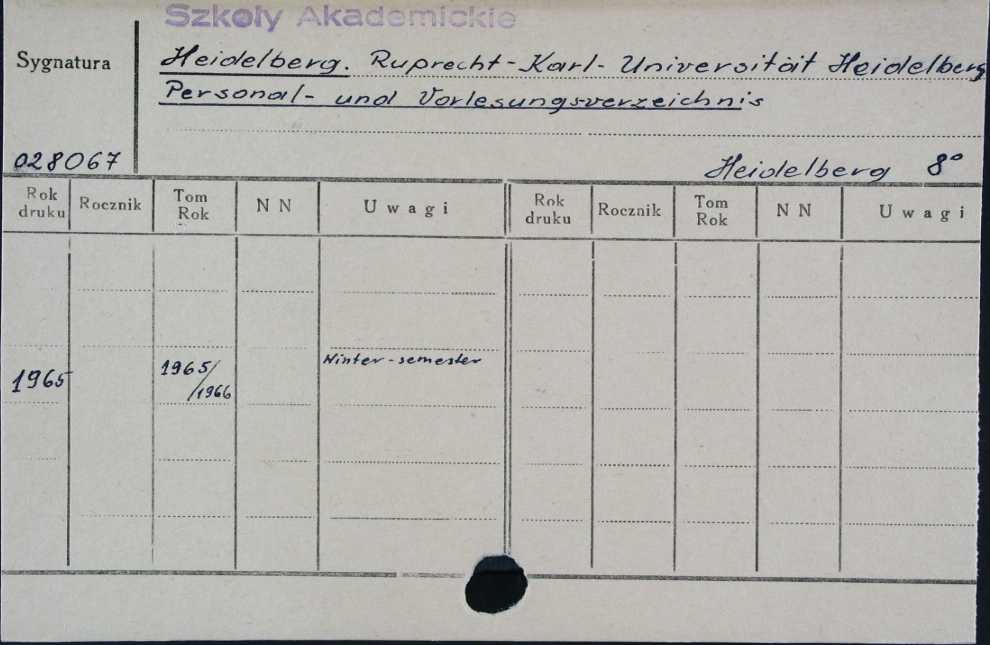 Szkoły Akademickie
Sygnatura
Heidelberg. Ruprecht-Karl-Universität Heidelberg
Personal- und Vorlesungsverzeichnis
028067
Heidelberg 8°
Rok druku Rocznik Tom Rok N N Uwagi Rok druku Rocznik Tom Rok N N Uwagi
1965 1965/1966 Winter-semester